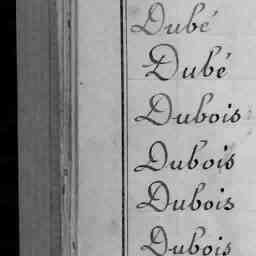 Dubé
Dubé
Dubois
Dubois
Dubois
Dubois